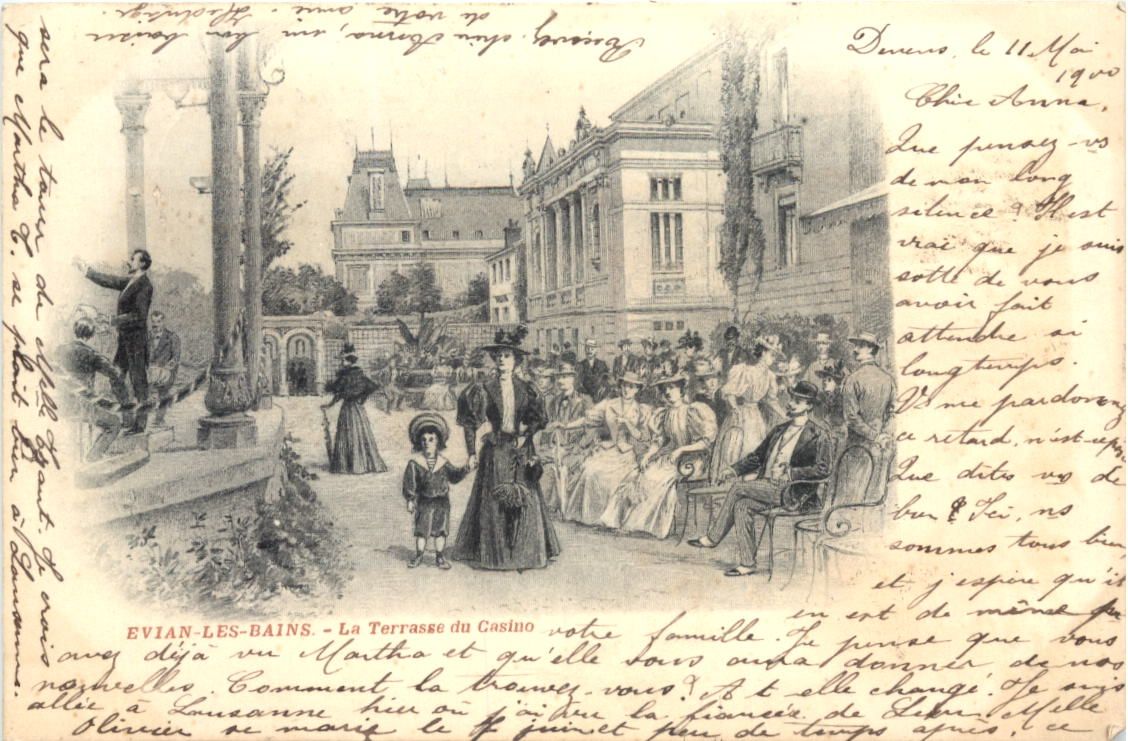 Devens, le 11 Mai
1900
Chère Anna,
Que pensez-vs
de mon long
silence? Il est
vrai que je suis
sotte de vous
avoir fait
attendre si
longtemps.
Vs me pardonnez
ce retard, n'est-ce pas
Que dites vs de
bon? Ici, ns
sommes tous bien
et j'espère qu'il
en est de même pr
votre famille. Je pense que vous
avez déjà vu Martha et qu'elle vous aura donner de nos
nouvelles. Comment la trouvez-vous? A t elle changé. Je suis
allée à Lausanne hier où j'ai vu la fiancée de Melle
Olivier se marie le juin et peu de temps après, ce
sera le tour de Melle. Je crois
que Martha C. se plaît bien à Lausanne.
Recevez, chère Anna, un bon baiser
de votre amie.
EVIAN-LES-BAINS. - La Terrasse du Casino